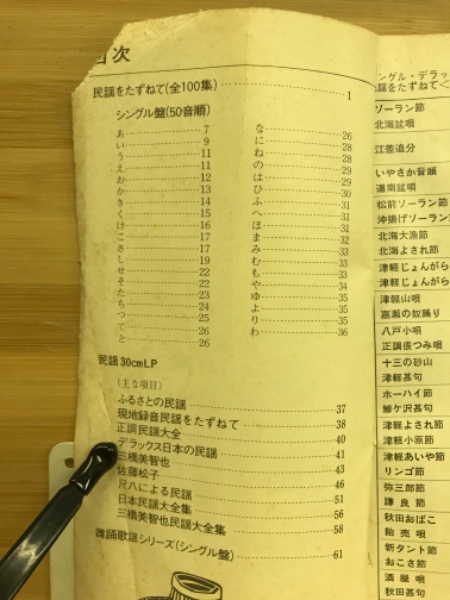 目次
民謡をたずねて(全100集) 1
シングル盤(50音順)
あ 7
い 9
う 11
え 11
お 12
か 13
き 14
く 15
け 16
こ 17
さ 17
し 19
せ 22
そ 22
た 23
ち 24
つ 25
て 26
と 26
な 26
に 28
ね 28
の 29
は 29
ひ 30
ふ 31
へ 31
ほ 31
ま 32
み 33
む 33
も 33
や 34
ゆ 35
よ 35
り 35
わ 36
民謡30cmLP
(主な項目)
ふるさとの民謡 37
現地録音民謡をたずねて 38
正調民謡大全 40
デラックス日本の民謡 41
三橋美智也 43
佐藤松子 46
尺八による民謡 51
日本民謡大全集 56
三橋美智也民謡大全集 58
舞踊歌謡シリーズ(シングル盤) 61
ングル・デラッ
謡をたずねて<
ソーラン節
北海盆唄
江差追分
いやさか音頭
道南盆唄
松前ソーラン節
沖揚げソーラン
北海大漁節
北海よされ節
津軽じょんがら
津軽じょんがら
津軽山唄
嘉瀬の奴踊り
八戸小唄
正調俵つみ唄
十三の砂山
津軽甚句
ホーハイ節
鰺ケ沢甚句
津軽よされ節
津軽小原節
津軽あいや節
リンゴ節
弥三郎節
謙良節
秋田おばこ
飴売唄
新タント節
おこさ節
酒屋唄
秋田甚句